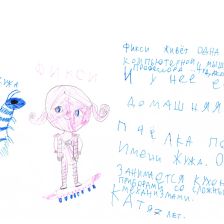 ЖУЖА
ФИКСИ
ФИКСИ ЖИВЁТ ОДНА
КОМПЬЮТЕРНОЙ МЫШ
ПРОФЕССОРА
И У НЕЕ Е
ДОМАШНЯЯ
ПЧЁЛКА ПО
ИМЕНИ ЖУЖА. О
ЗАНИМАЕТСЯ
ПРИБОРАМИ СО СЛОЖНЫ
МЕХАНИЗМАМИ.
КАТЯ 7 ЛЕТ.